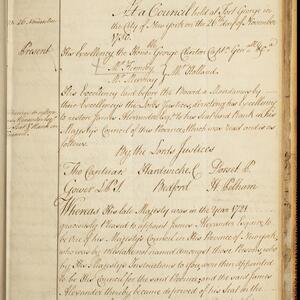 At a Council held at Fort George in
the City of New York on the 26th day of November
1750.
Present
His Excellency the Honble George Clinton Capt. Genl. &c
Mr Kennedy
Mr Murray
Mr Holland
His Excellency laid before the Board a Mandamus by
their Excellencys the Lords Justices, directing his Excellency
to restore James Alexander Esqr to his Seat and Rank in his
Majestys Council of this Province, Which was read and is as
follows.
By the Lords Justices
Dorset P.
Gower C.P.S.
Bedford
H. Pelham
Whereas His late Majesty was in the year 1721
graciously Pleased to appoint James Alexander Esquire to
be One of his Majestys Council in this Province of New York
who was by mistake not named amongst those Persons, who
by His Majestys Instructions to you, were then appointed
to be His Council for the said Province and the said James
Alexander thereby became deprived of his Seat in the